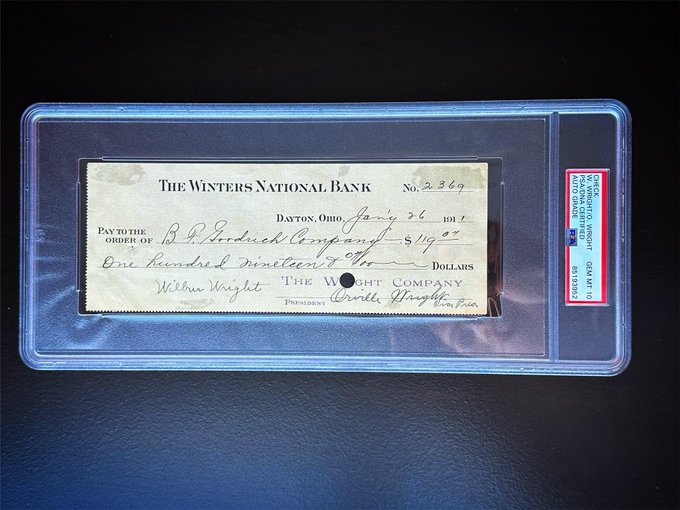 THE WINTERS NATIONAL BANK No. 2369
DAYTON, OHIO, Jan'y 26 1911
PAY TO THE
ORDER OF B. F. Goodrich Company $119.07
One hundred nineteen & 07/00 DOLLARS
Wilbur Wright THE W GHT COMPANY
PRESIDENT Orville Wright
Vice Pres.
CHECK
W. WRIGHT/O. WRIGHT GEM MT 10
PSA/DNA CERTIFIED
AUTO GRADE PSA 85193952